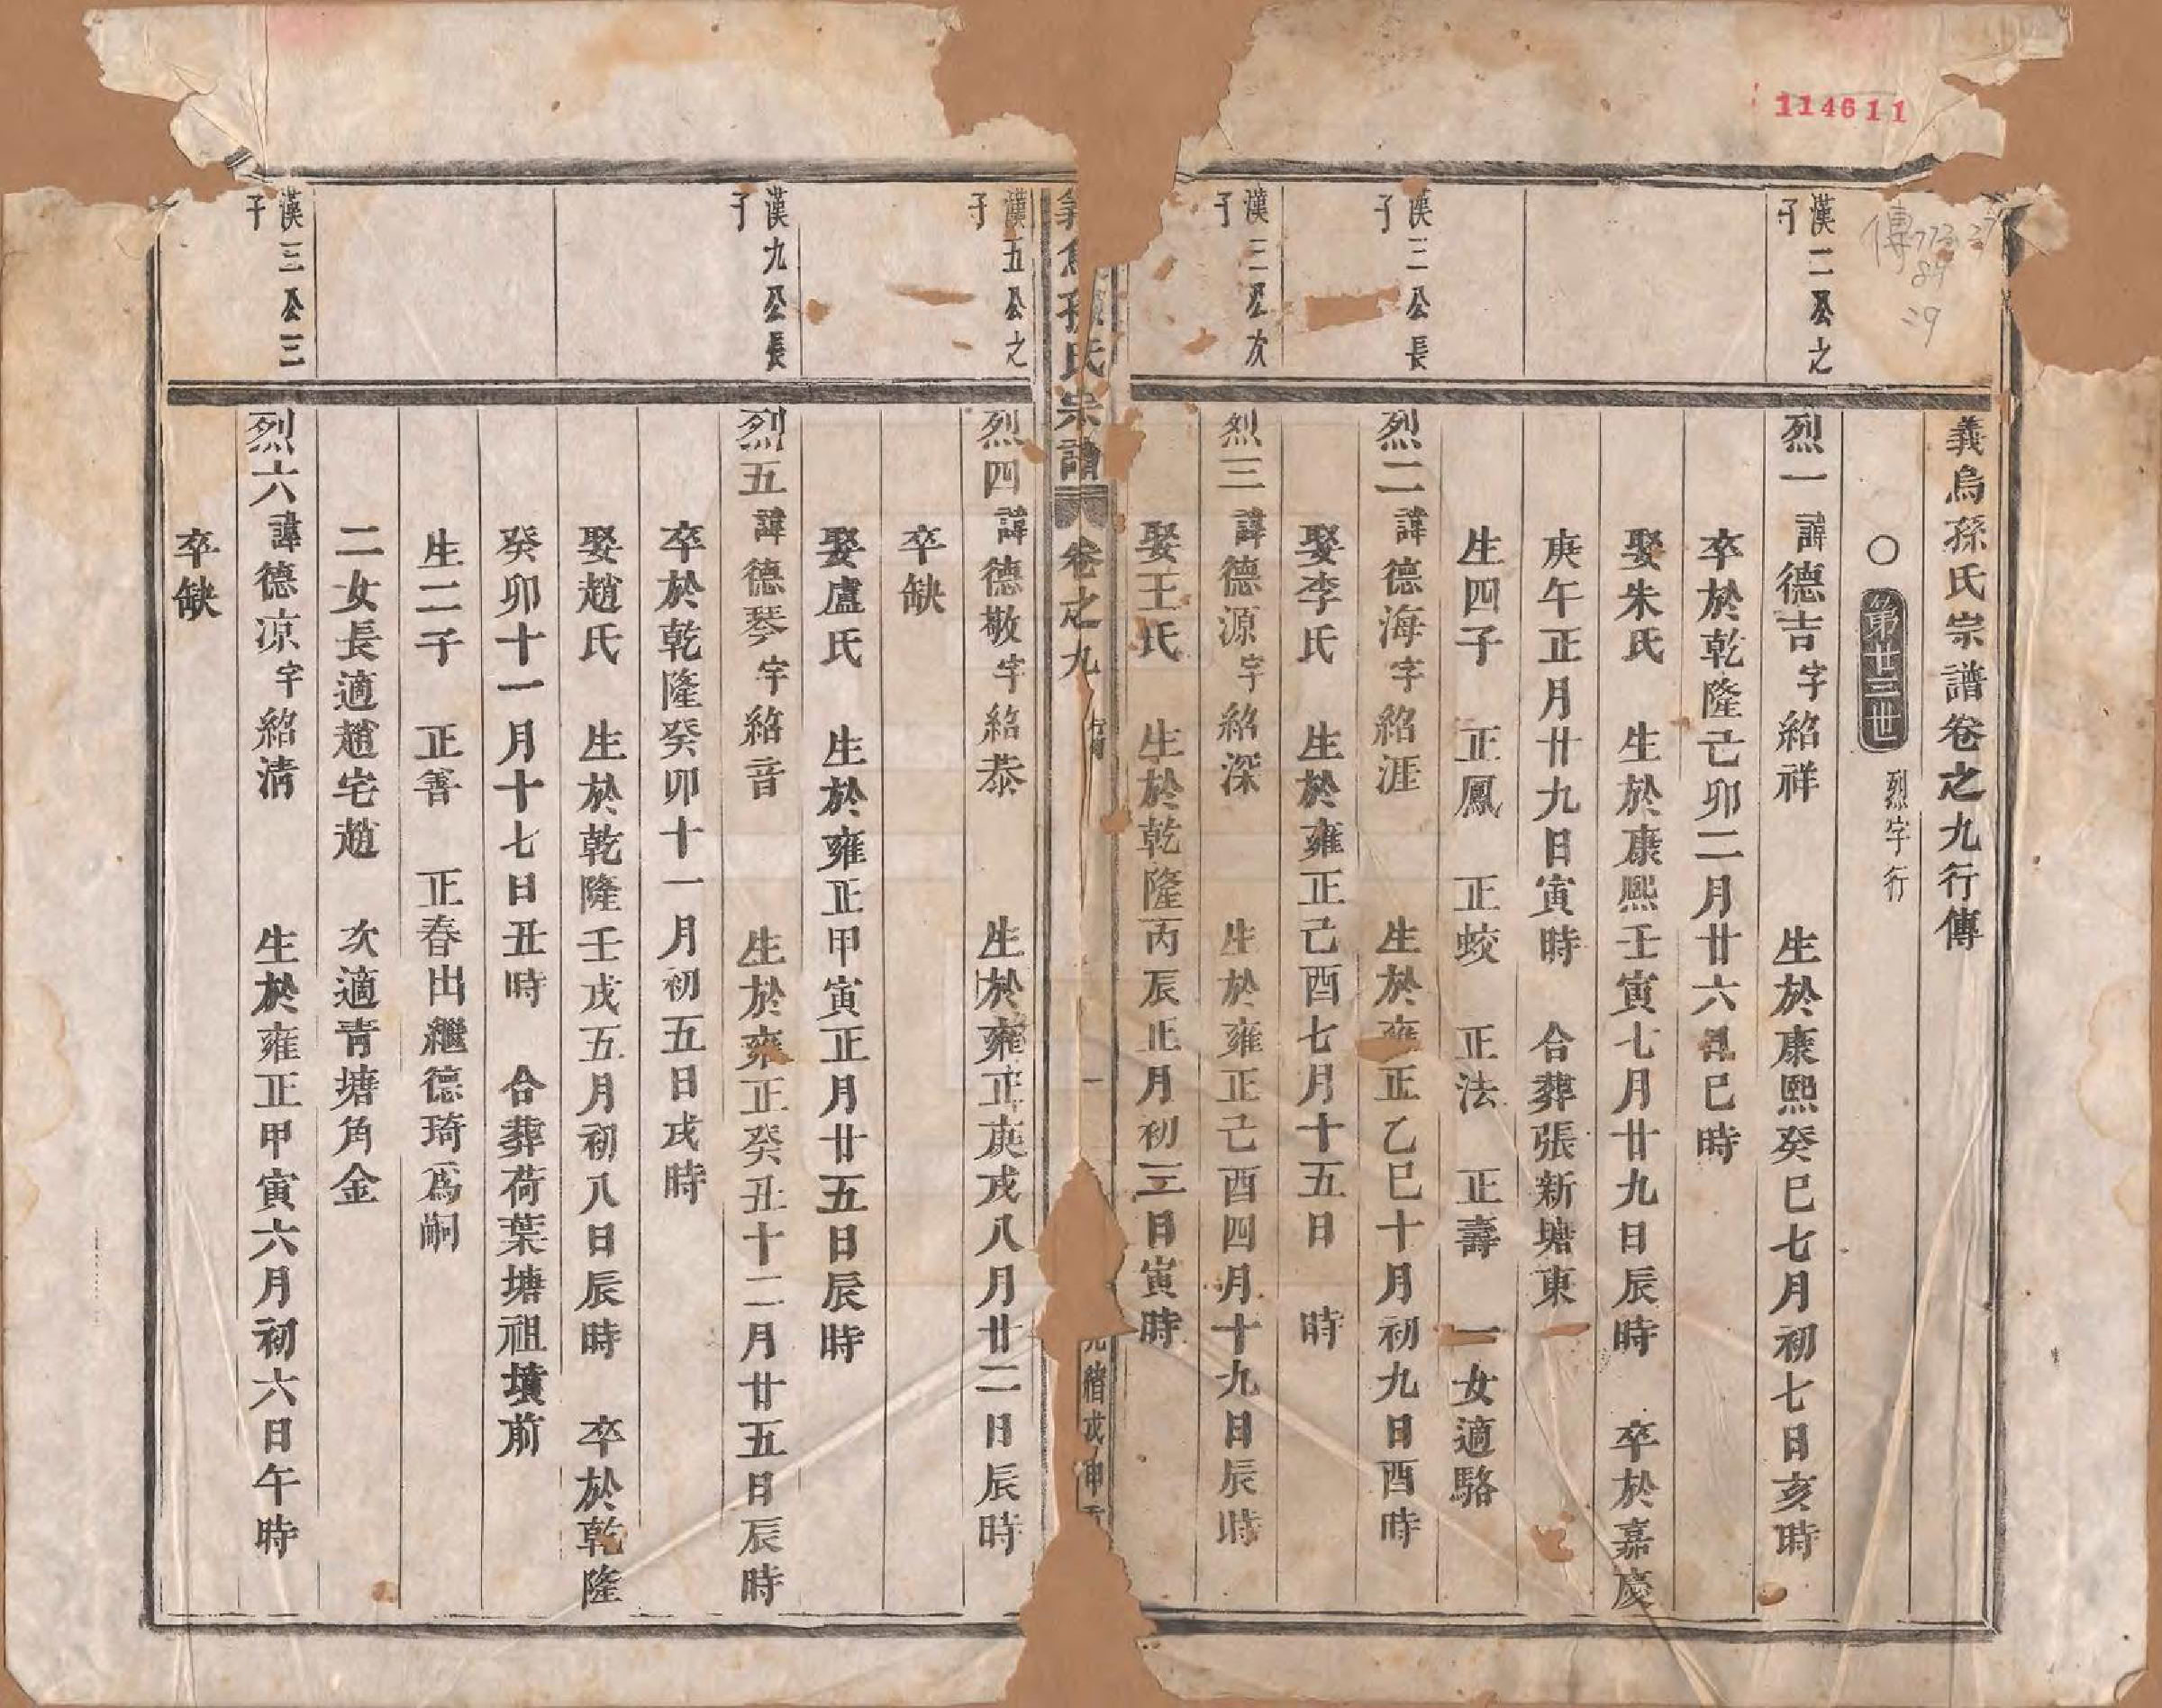 114611
傳
義烏孫氏宗譜卷之九行傳
○第廿三世 烈字行
漢二公之子
烈一諱德吉字紹祥 生於康熙癸巳七月初七日亥時
卒於乾隆己卯二月廿六日巳時
娶朱氏 生於康熙壬寅七月廿九日辰時 卒於嘉慶
庚午正月廿九日寅時 合葬張新塘東
生四子 正鳳 正蛟 正法 正壽 一女適駱
漢三公長子
烈二諱德海字紹涯 生於雍正乙巳十月初九日酉時
娶李氏 生於雍正己酉七月十五日 時
漢三公次子
烈三諱德源字紹深 生於雍正己酉四月十九日辰時
娶王氏 生於乾隆丙辰正月初三日寅時
義烏孫氏宗譜 卷之九 一 光緒戊申
漢五公之子
烈四諱德敬字紹恭 生於雍正庚戌八月廿二日辰時
卒缺
娶盧氏 生於雍正甲寅正月廿五日辰時
漢九公長子
烈五諱德琴字紹音 生於雍正癸丑十二月廿五日辰時
卒於乾隆癸卯十一月初五日戌時
娶趙氏 生於乾隆壬戌五月初八日辰時 卒於乾隆
癸卯十一月十七日丑時 合葬荷葉塘祖墳前
生二子 正善 正春出繼德琦爲嗣
二女長適趙宅趙 次適青塘角金
漢三公三子
烈六諱德凉字紹清 生於雍正甲寅六月初六日午時
卒缺